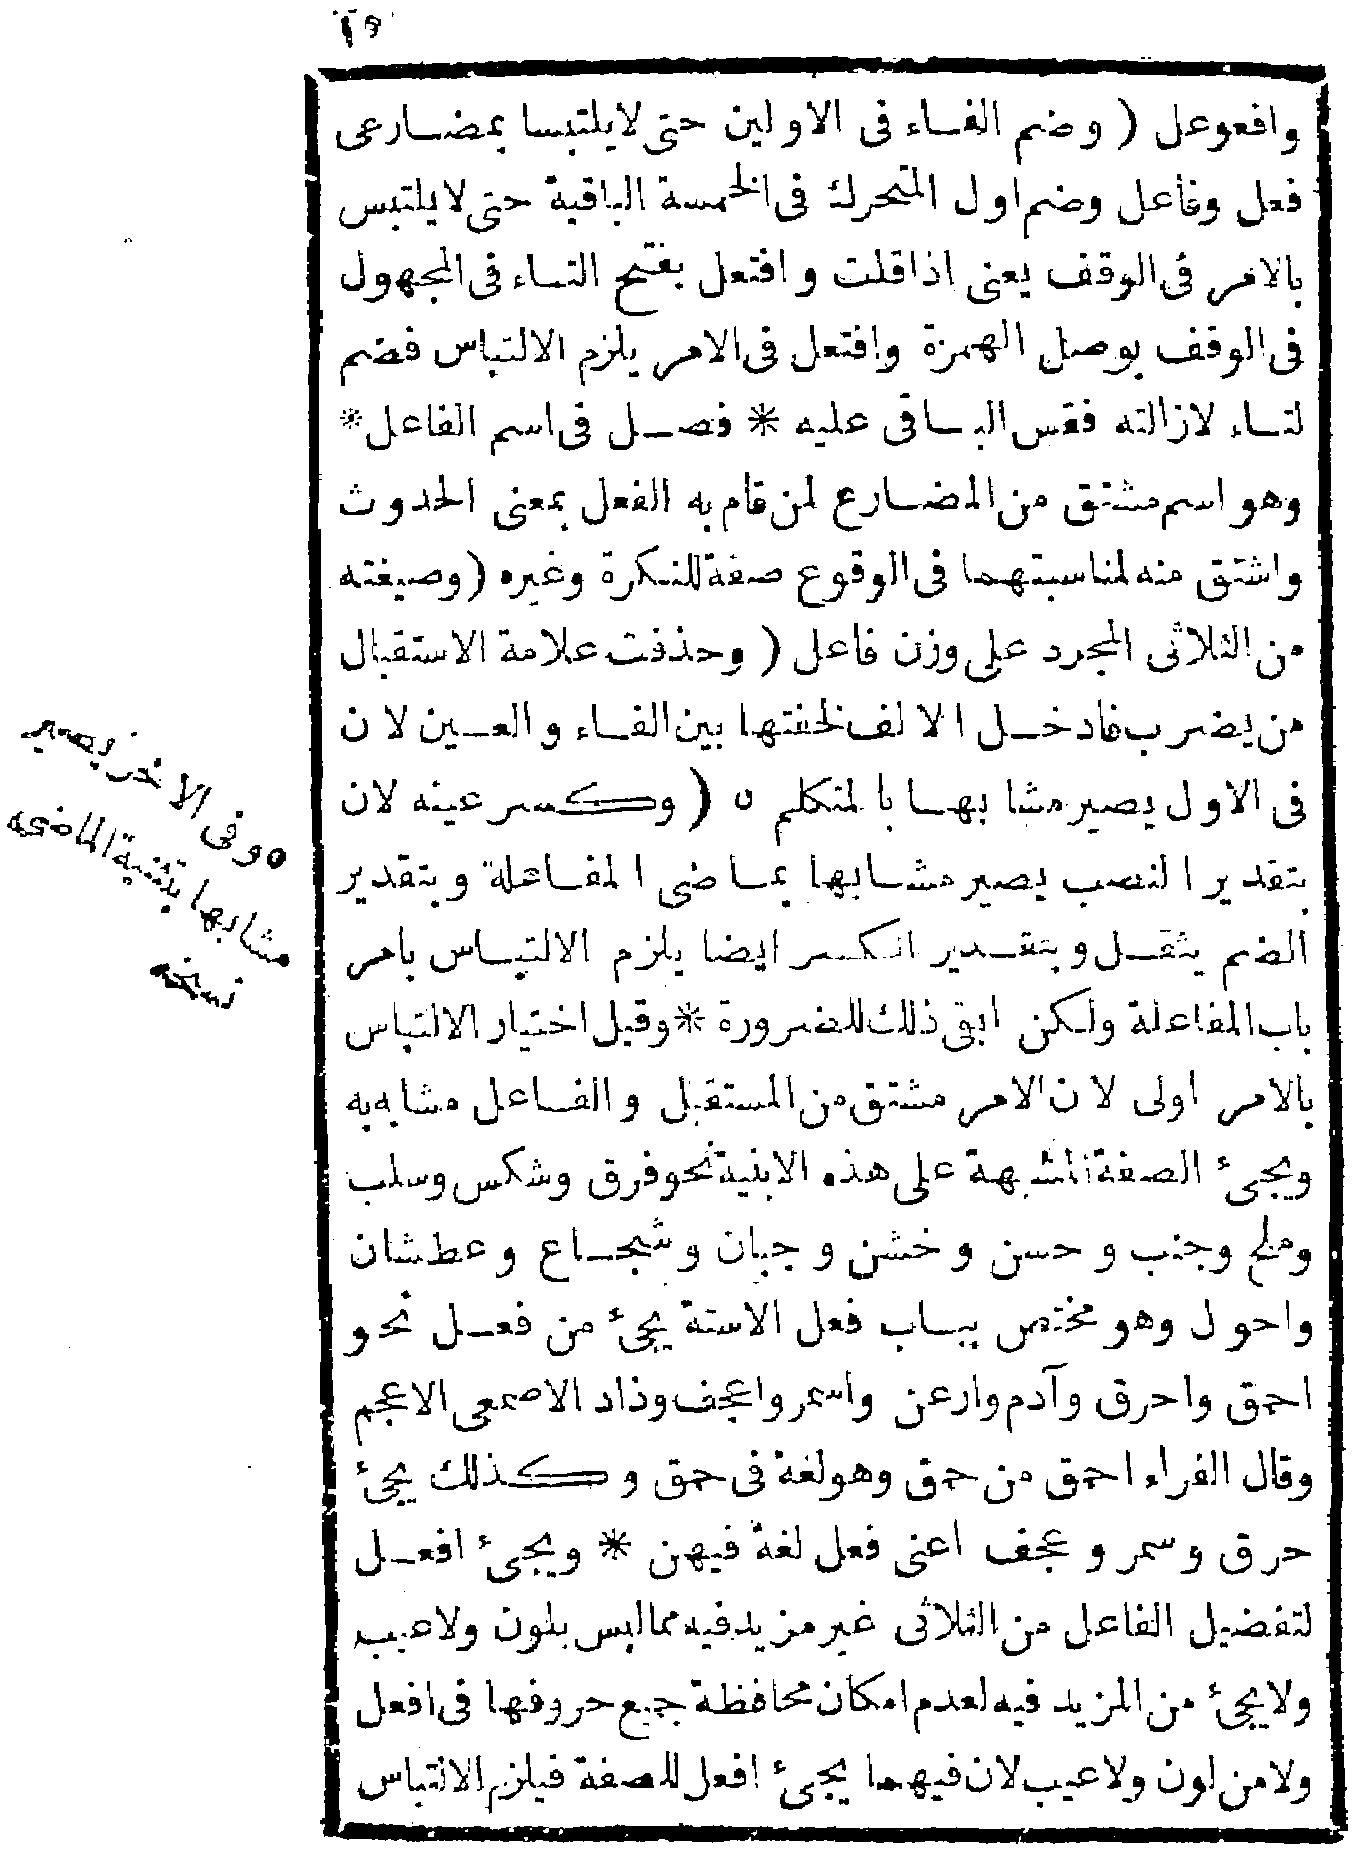 ٢٥
وافعوعل ( وضم الفاء فى الاولين حتى لايلتبسا بمضارعى
فعل وفاعل وضم اول المتحرك فى الخمسة الباقية حتى لايلتبس
بالامر فى الوقف يعنى اذا قلت وافتعل بفتح التاء فى المجهول
فى الوقف بوصل الهمزة وافتعل فى الامر يلزم الالتباس فضم
لتاء لازالته فقس الباقى عليه * فصل فى اسم الفاعل *
وهو اسم مشتق من المضارع لمن قام به الفعل بمعنى الحدوث
واشتق منه لمناسبتهما فى الوقوع صفة للنكرة وغيره ( وصيغته
من الثلاثى المجرد على وزن فاعل ( وحذفت علامة الاستقبال
من يضرب فادخل الالف لخفتها بين الفاء والعين لان
فى الاول يصير مشابها بالمتكلم ٥ ( وكسر عينه لان
بتقدير النصب يصير مشابها بماضى المفاعلة وبتقدير
الضم يثقل وبتقدير الكسر ايضا يلزم الالتباس بامر
باب المفاعلة ولكن ابقى ذلك للضرورة * وقيل اختيار الالتباس
بالامر اولى لان الامر مشتق من المستقبل والفاعل مشابه به
ويجىء الصفة المشبهة على هذه الابنية نحو فرق وشكس وسلب
وملح وجنب وحسن وخشن وجبان وشجاع وعطشان
واحول وهو مختص بباب فعل الاستة يجىء من فعل نحو
احمق واحرق وآدم وارعن واسمر واعجف وذاد الاصمعى الاعجم
وقال الفراء احمق من حمق وهو لغة فى حمق وكذلك يجىء
حرق وسمر وعجف اعنى فعل لغة فيهن * ويجىء افعل
لتفضيل الفاعل من الثلاثى غير مزيد فيه مما ليس بلون ولاعيب
ولايجىء من المزيد فيه لعدم امكان محافظة جميع حروفها فى افعل
ولامن لون ولاعيب لان فيهما يجىء افعل للصفة فيلزم الالتباس
٥ وفى الاخر يصير
مشابها بتثنية الماضى
نسخه